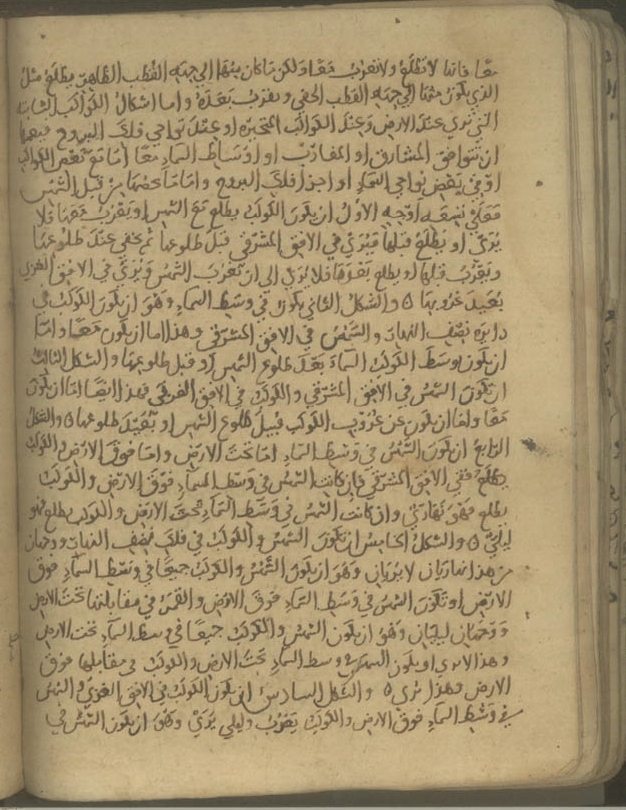 معًا فانها لا تطلع ولا تغرب معًا ولكن ما كان منها الى جهه القطب الظاهر يطلع مثل
الذي يكون منها الى جهه القطب الخفي ويغرب بعده واما اشكال الكواكب الثابته
التي تري عند الارض وعند الكواكب المتحيره او عند نواحي فلك البروج فبعضها
ان تتوافق المشارق او المغارب او اوساط السماء معًا اما مع بعض الكواكب
او في بعض نواحي السماء او اجزا فلك البروج واما ما خصها من قبل الشمس
فعلي تسعه اوجه الاول ان يكون الكوكب يطلع مع الشمس او يغرب معها فلا
يري او يطلع قبلها فيري في الافق المشرقي قبل طلوعها ثم يخفي عند طلوعها
ويغرب قبلها او يطلع بعدها فلا يري الى ان تغرب الشمس ويري في الافق الغربي
بعيد غروبها ٥ والشكل الثاني يكون في وسط السماء وهو ان يكون الكوكب في
دايره نصف النهار والشمس في الافق المشرقي وهذا اما ان يكون معًا واما
ان يكون توسط الكوكب السماء بعد طلوع الشمس او قبل طلوعها والشكل الثالث
ان تكون الشمس في الافق المشرقي والكوكب في الافق الغربي فهذا ايضًا اما ان يكون
معًا واما ان يكون غروب الكوكب قبيل طلوع الشمس او بعيد طلوعها ٥ والشكل
الرابع ان يكون الشمس في وسط السماء اما تحت الارض واما فوق الارض والكوكب
يطلع في الافق المشرقي فان كانت الشمس في وسط السماء فوق الارض والكوكب
يطلع فهو نهاري وان كانت الشمس في وسط السماء تحت الارض والكوكب يطلع فهو
ليلي ٥ والشكل الخامس ان يكون الشمس والكوكب في فلك نصف النهار ووجهان
من هذا نهاريان لا يريان وهو ان يكون الشمس والكوكب جميعًا في وسط السماء فوق
الارض او تكون الشمس في وسط السماء فوق الارض والقمر في مقابلتها تحت الارض
ووجهان ليليان وهو ان يكون الشمس والكوكب جميعًا في وسط السماء تحت الارض
وهذا لا يري او يكون الشمس في وسط السماء تحت الارض والكوكب في مقابلها فوق
الارض وهذا يري ٥ والشكل السادس ان يكون الكوكب في الافق الغربي والشمس
في وسط السماء فوق الارض والكوكب يغرب وليلي يري وهو ان يكون الشمس في